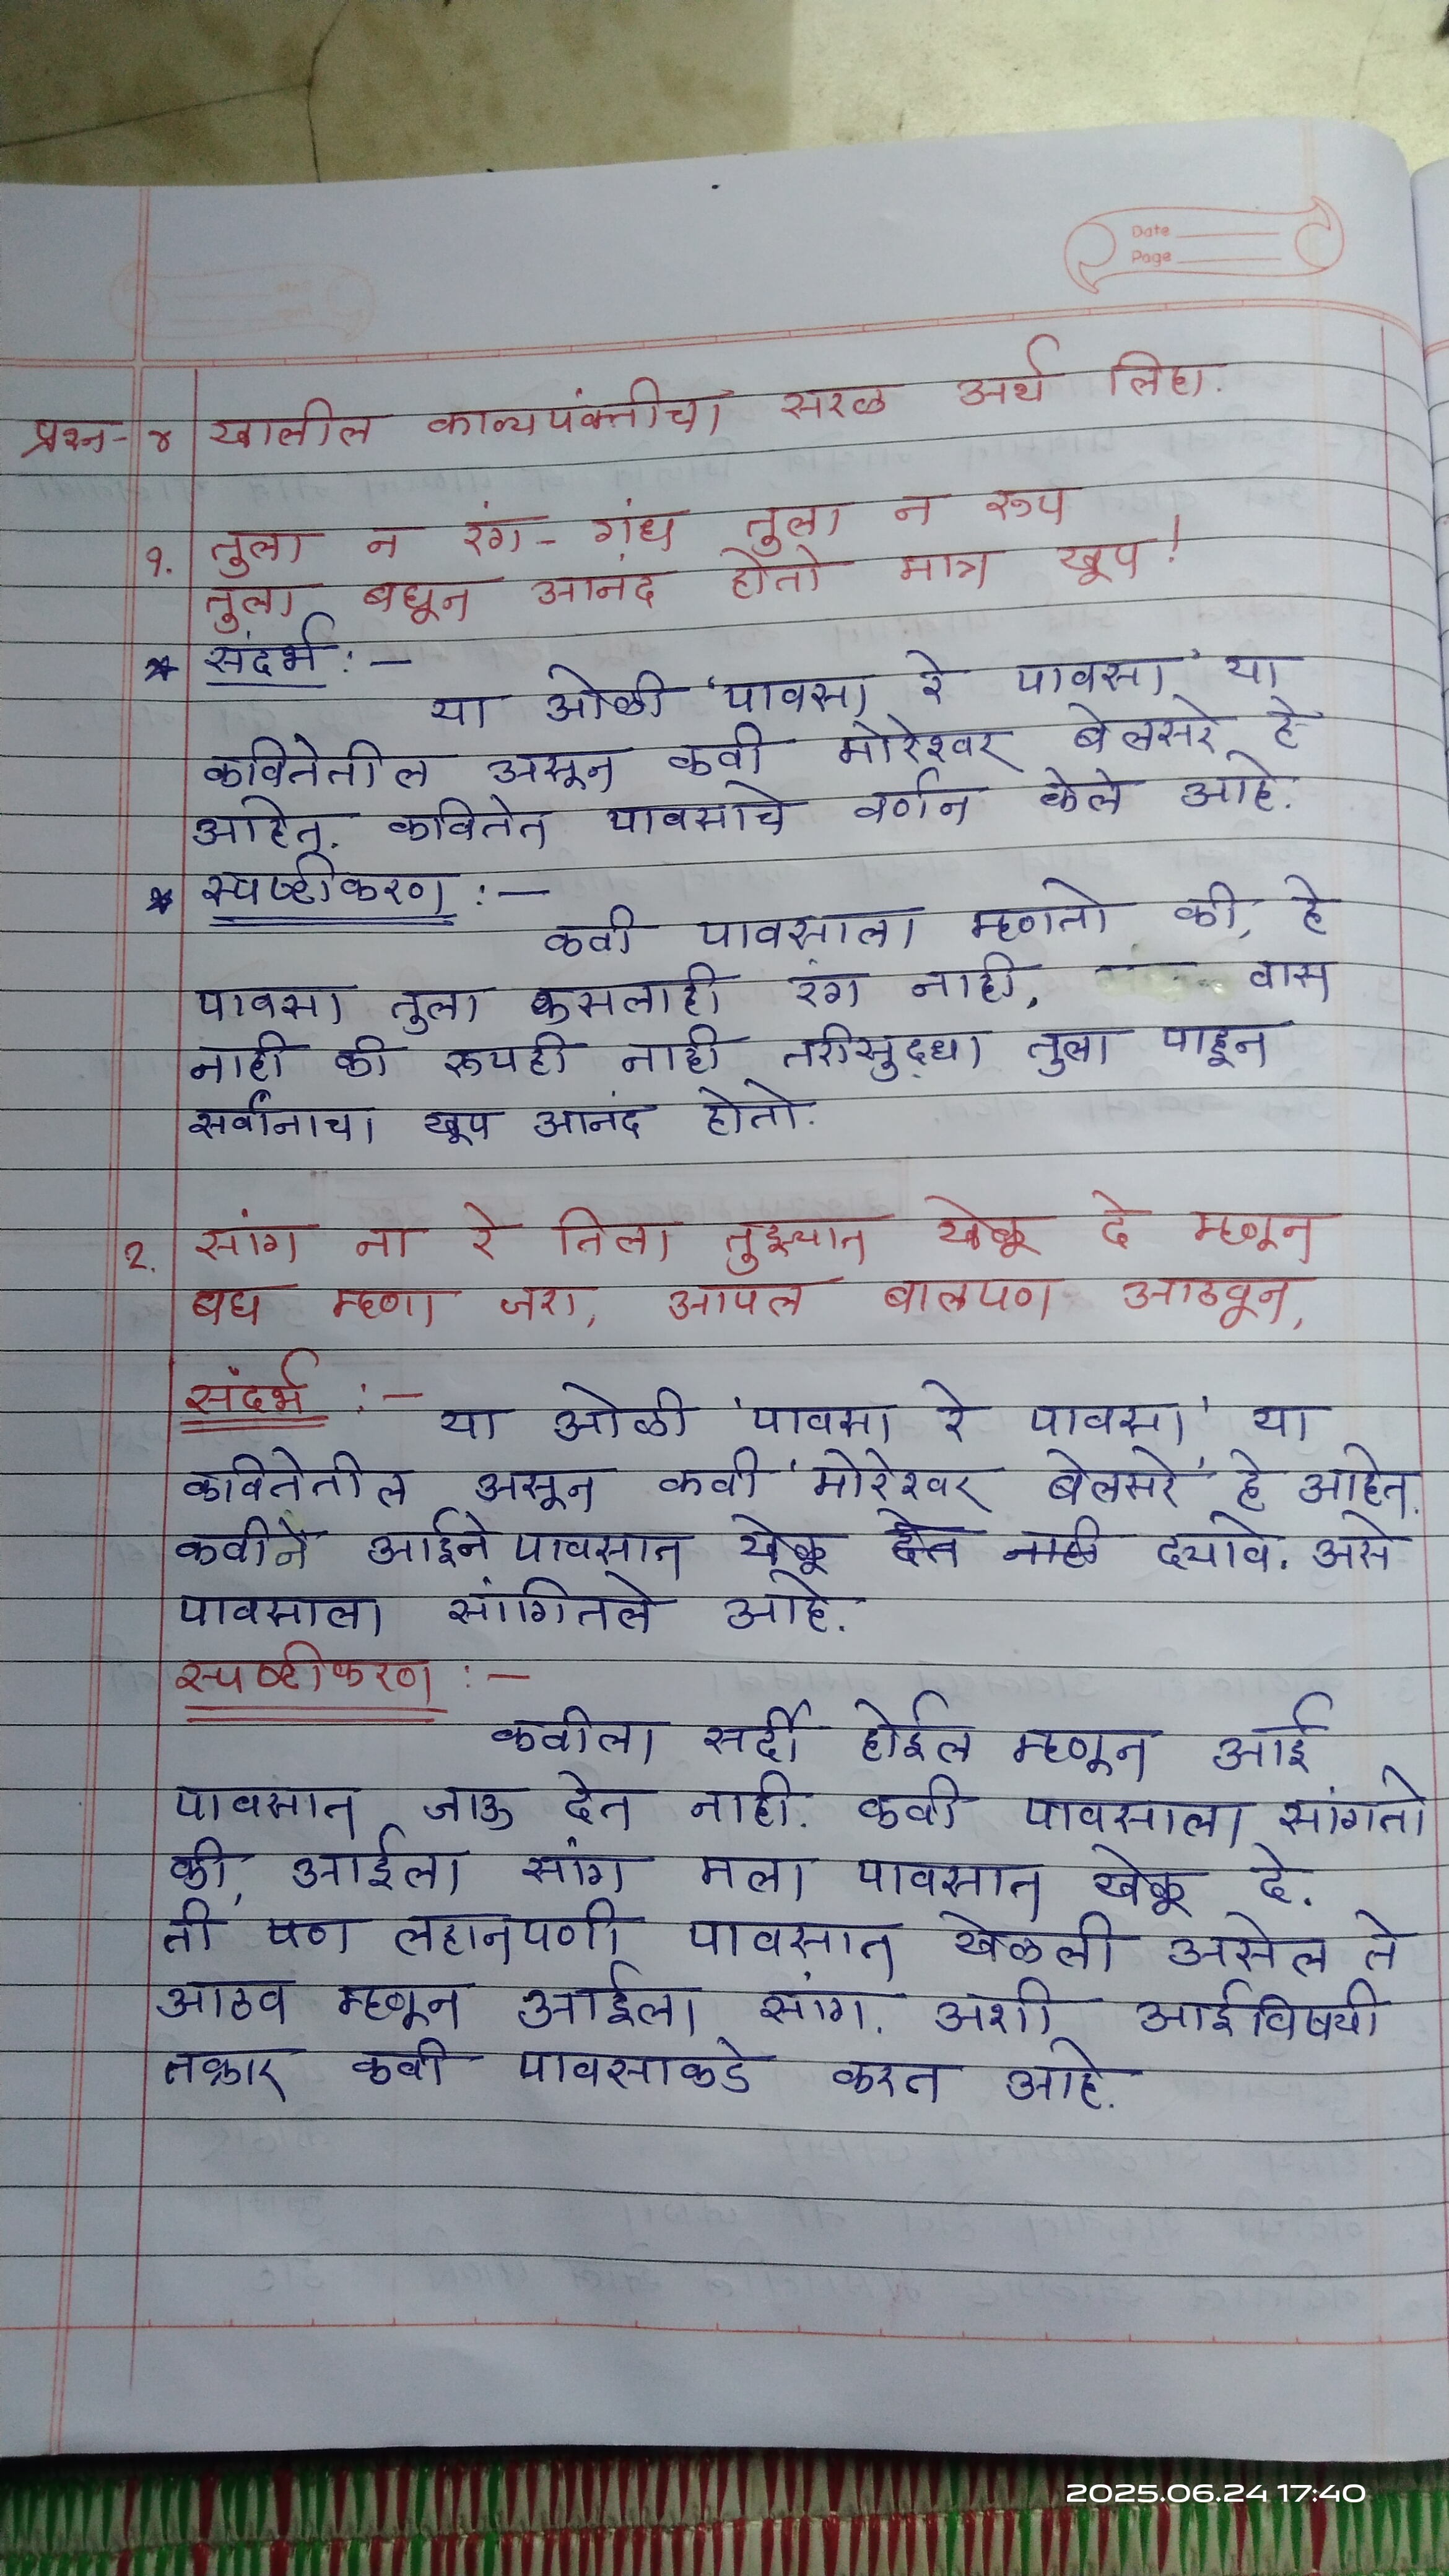 Date
Page
प्रश्न-४ खालील काव्यपंक्तीचा सरळ अर्थ लिहा.
१. तुला न रंग-गंध तुला न रूप
तुला बघून आनंद होतो मात्र खूप!
* संदर्भ :-
या ओळी 'पावसा रे पावसा' या
कवितेतील असून कवी मोरेश्वर बेलसरे हे
आहेत. कवितेत पावसाचे वर्णन केले आहे.
* स्पष्टीकरण :-
कवी पावसाला म्हणतो की, हे
पावसा तुला कसलाही रंग नाही, वास
नाही की रूपही नाही तरीसुद्धा तुला पाहून
सर्वांनाचा खूप आनंद होतो.
२. सांग ना रे तिला तुझ्यात खेळू दे म्हणून
बघ म्हणा जरा, आपल बालपण आठवून,
संदर्भ :-
या ओळी 'पावसा रे पावसा' या
कवितेतील असून कवी 'मोरेश्वर बेलसरे' हे आहेत.
कवीने आईने पावसात खेळू देत नाही द्यावे. असे
पावसाला सांगितले आहे.
स्पष्टीकरण :-
कवीला सर्दी होईल म्हणून आई
पावसात जाऊ देत नाही. कवी पावसाला सांगतो
की, आईला सांग मला पावसात खेळू दे.
ती पण लहानपणी पावसात खेळली असेल ते
आठव म्हणून आईला सांग. अशी आईविषयी
तक्रार कवी पावसाकडे करत आहे.
2025.06.24 17:40